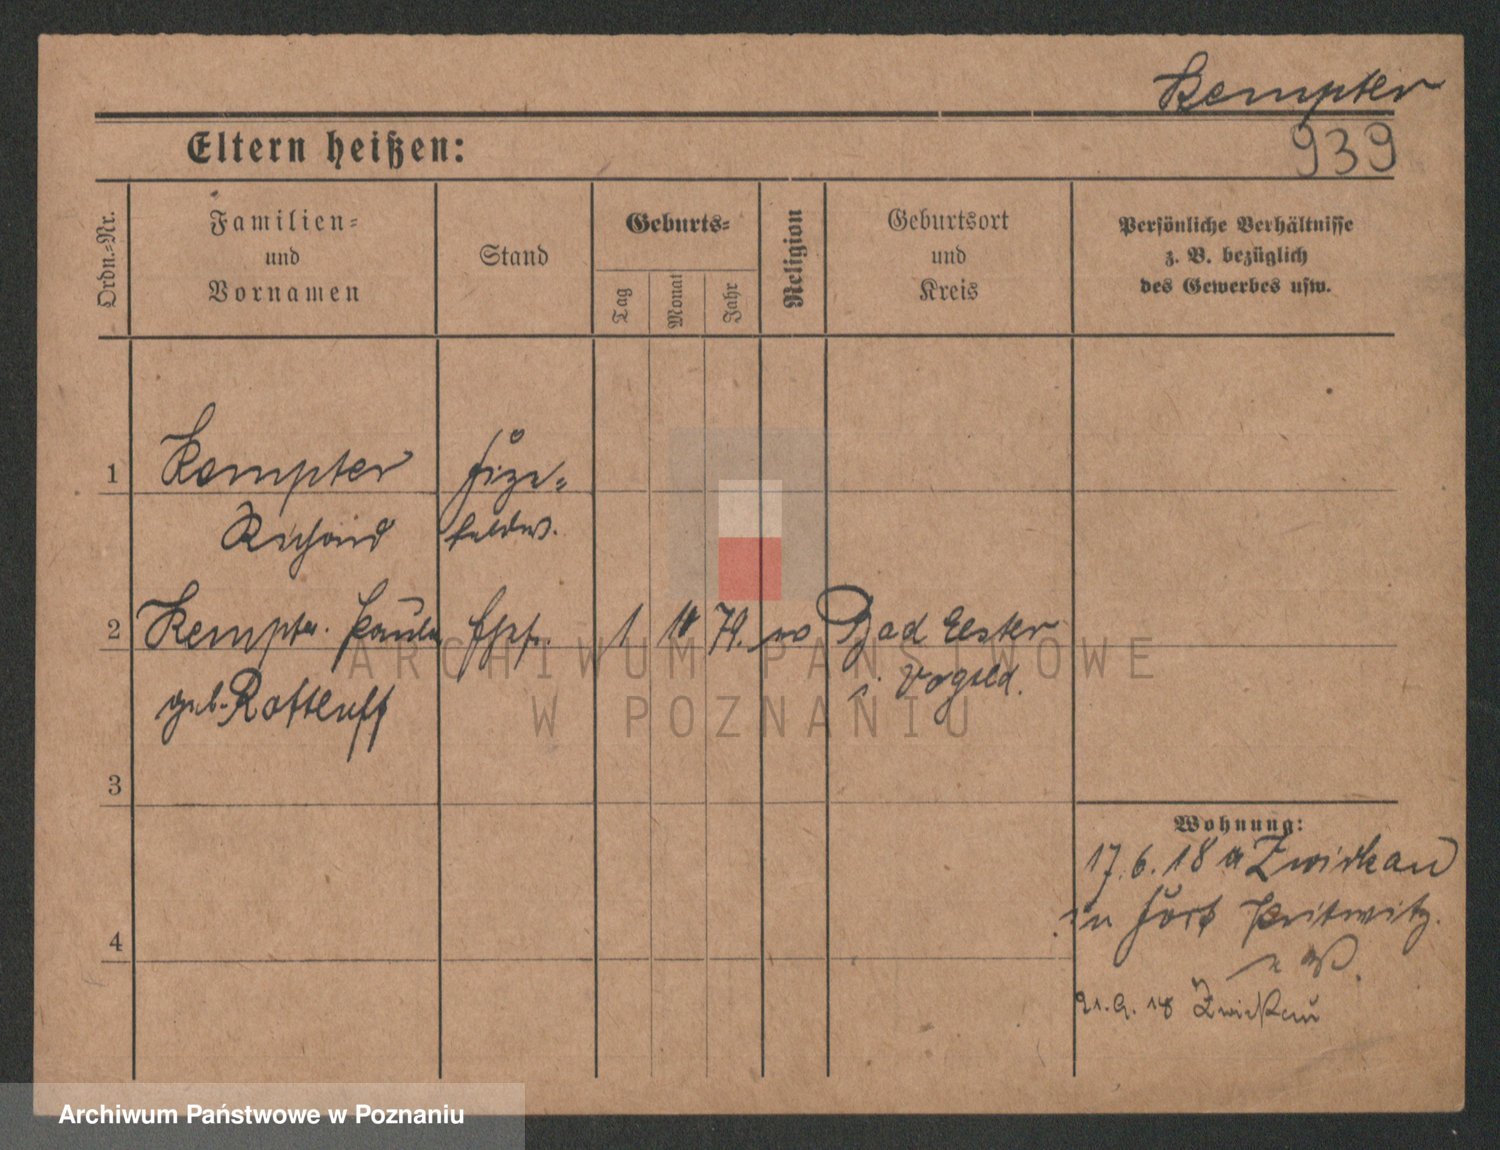 Kempter
939
Eltern heißen:
Ordn.-Nr.
Familien-
und
Vornamen
Stand
Geburts-
Tag
Monat
Jahr
Religion
Geburtsort
und
Kreis
Persönliche Verhältnisse
z. B. bezüglich
des Gewerbes usw.
1
Kempter
Richard
Vize-
feldw.
2
Kempter Paula
geb. Rottluff
Ehefr.
1 10 79.
ev
Bad Elster
i. Vogtld.
3
4
Wohnung:
17.6.18 a Zwickau
in Fort Pritwitz.
21.9.18 Zwickau
ARCHIWUM PAŃSTWOWE
W POZNANIU
Archiwum Państwowe w Poznaniu